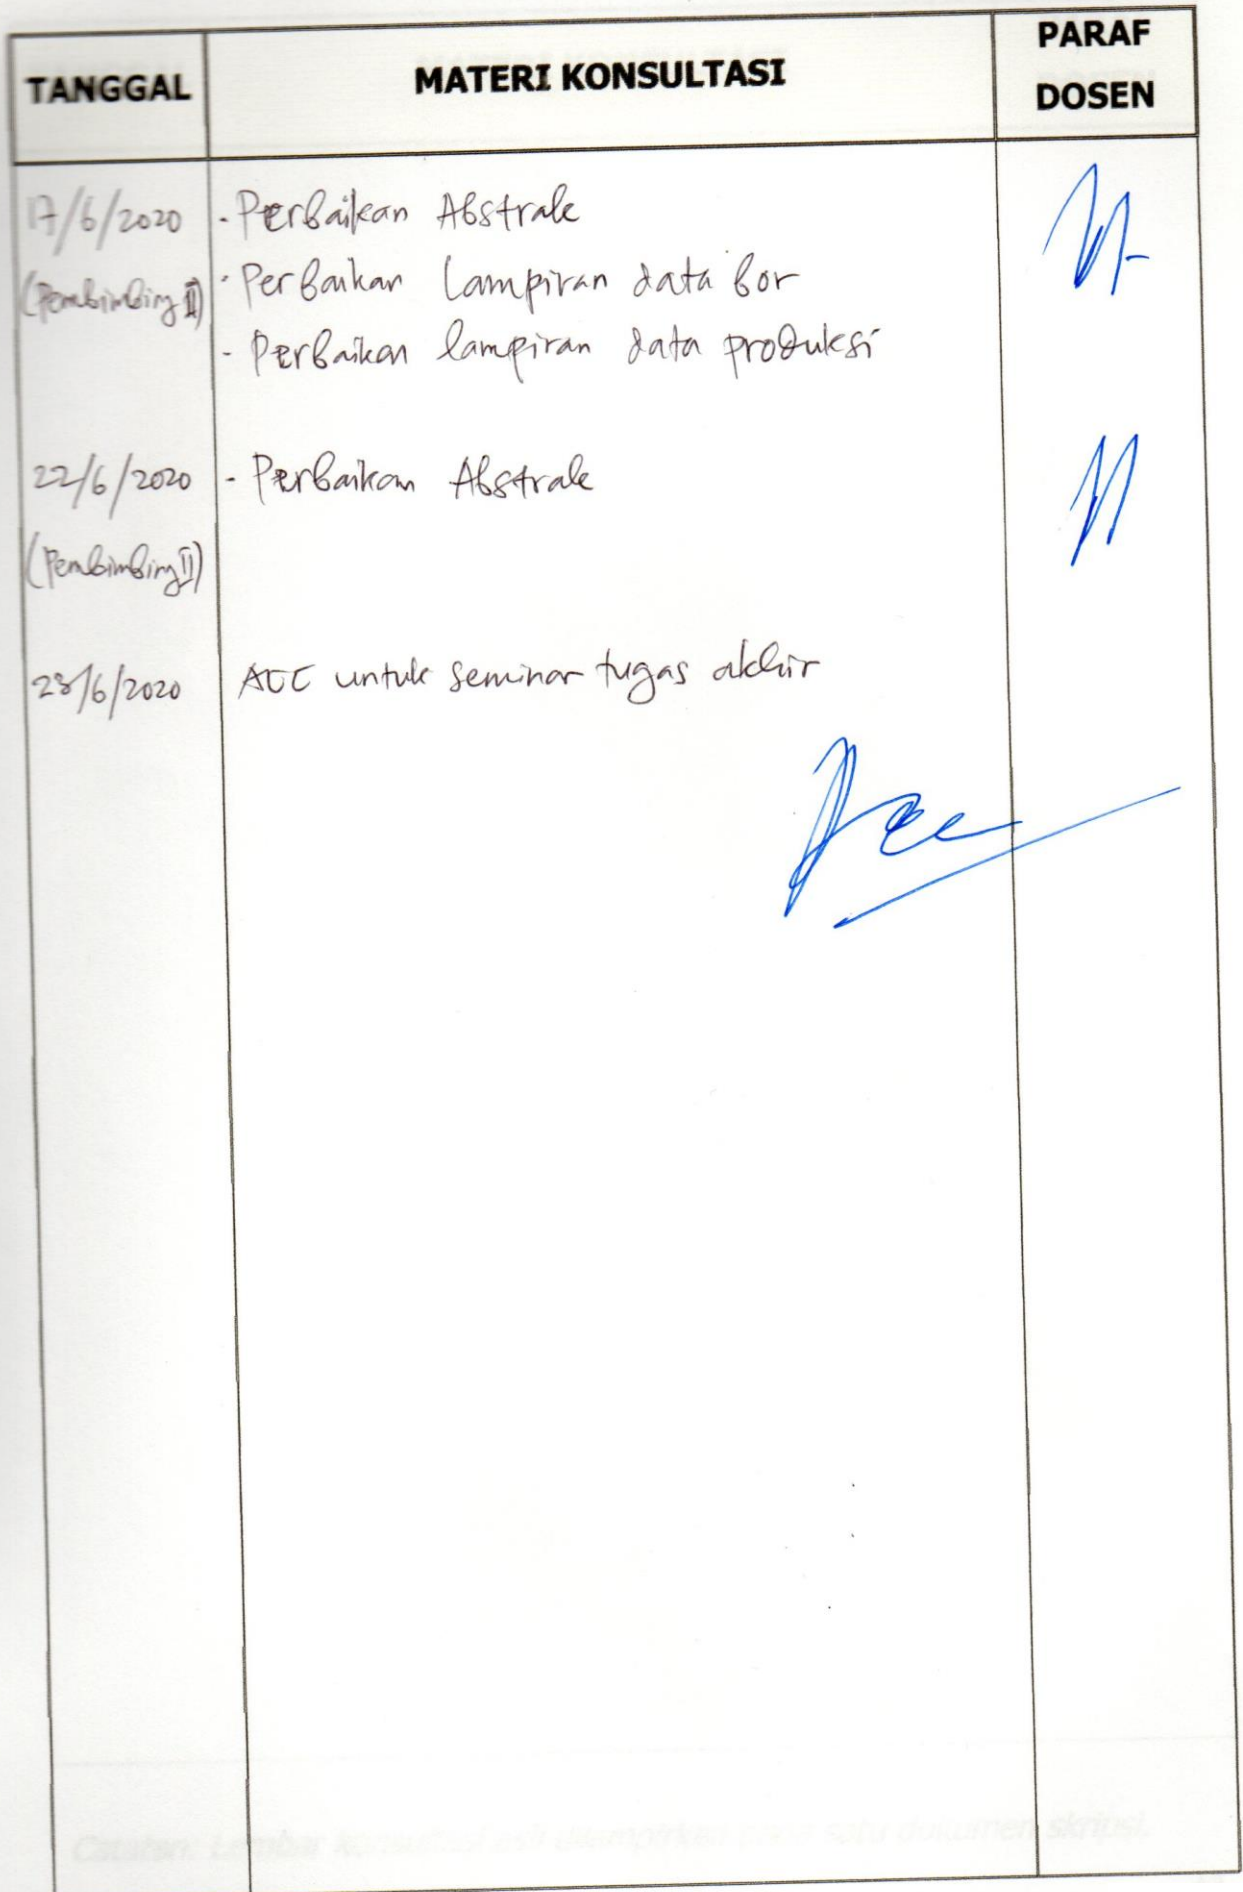 TANGGAL
MATERI KONSULTASI
PARAF
DOSEN
17/6/2020
(Pembimbing II)
- Perbaikan Abstrak
- Perbaikan Lampiran data bor
- Perbaikan lampiran data produksi
22/6/2020
(Pembimbing II)
- Perbaikan Abstrak
23/6/2020
ACC untuk seminar tugas akhir
Acc
Catatan: Lembar konsultasi asli dilampirkan pada satu dokumen skripsi.